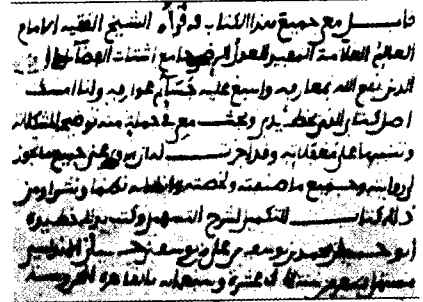 قابل مع جميع هذا الكتاب وقرأه الشيخ الفقيه الامام
العالم العلامة المفيد العدل الرضي جامع اشتات الفضائل
الدين نفع الله بمعارفه واسبغ عليه عوارفه وانا امسك
اصل كتابي الذي بخطي وبحث معي في جملة منه توضح المشكلات
وتنبهها على مقفلاته وقد اجزت له ان يرويه عني جميع ما يجوز
لي روايته وجميع ما صنفته ولخصته نظما ونثرا ومن
ذلك كتاب التكميل لشرح التسهيل وكتبه بخطه
ابو حيان محمد بن يوسف بن علي بن يوسف بن حيان
سنة عشرة وسبعمائة بالقاهرة المحروسة